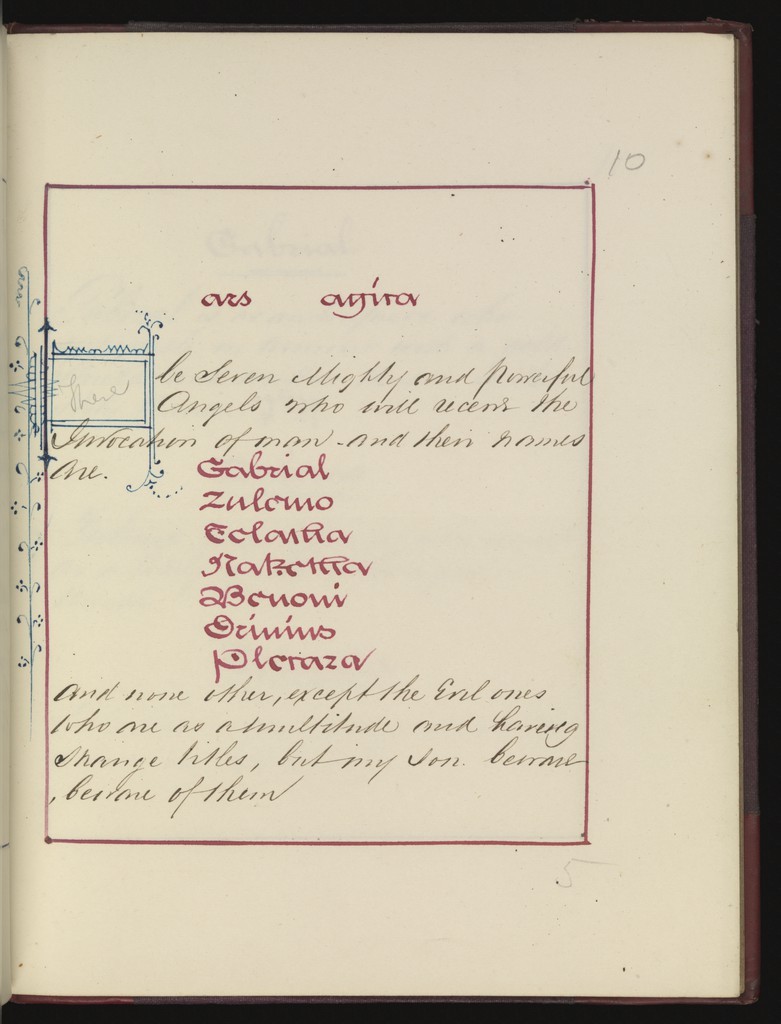 10
ars agira
There be Seven Mighty and powerful
Angels who will receive the
Invocation of man and their names
are.
Gabrial
Zulomo
Tolastha
Naketha
Benoni
Orinius
Pletaza
And none other, except the Evil ones
who are as a multitude and having
strange titles, but my son. beware
, beware of them
5